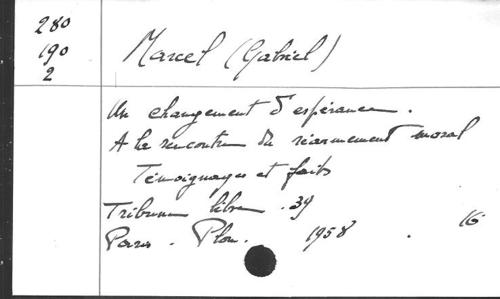 280
190
2
Marcel (Gabriel)
Un changement d'espérance.
A la rencontre du réarmement moral
Témoignages et faits
Tribune libre . 39
Paris . Plon. 1958 . 16